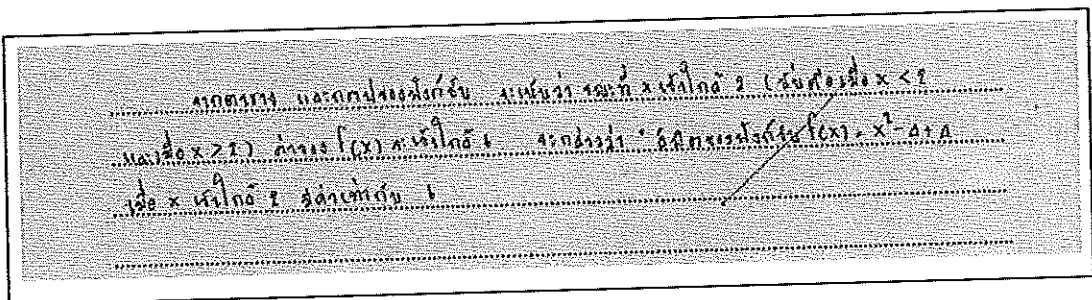 จากตาราง และกราฟของฟังก์ชัน จะเห็นว่า ขณะที่ x เข้าใกล้ 2 ( เมื่อ x < 2
และเมื่อ x > 2) ค่าของ f(x) จะเข้าใกล้ จะกล่าวว่า " ลิมิตของฟังก์ชัน f(x) = x²
เมื่อ x เข้าใกล้ 2 มีค่าเท่ากับ